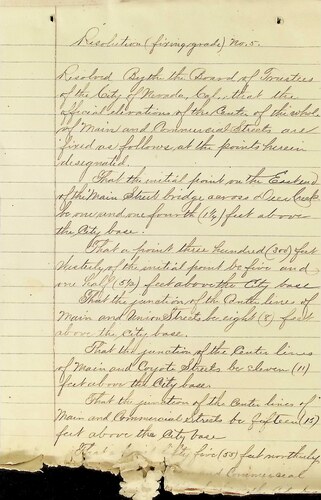 Resolution (fixing grade) No. 5.
Resolved By the the Board of Trustees
of the City of Nevada, Cal., that the
official elevations of the Center of the whole
of Main and Commercial Streets are
fixed as follows, at the points herein
designated.
That the initial point on the East end
of the Main Street bridge across Deer Creek
be one and one fourth (1¼) feet above
the City base.
That a point three hundred (300) feet
Westerly of the initial point be five and
one half (5½) feet above the City base
That the junction of the Center lines of
Main and Union Streets be eight (8) feet
above the City base.
That the junction of the Centre lines
of Main and Coyote Streets be eleven (11)
feet above the City base
That the junction of the Centre lines of
Main and Commercial Streets be fifteen (15)
feet above the City base
That five (55) feet northerly